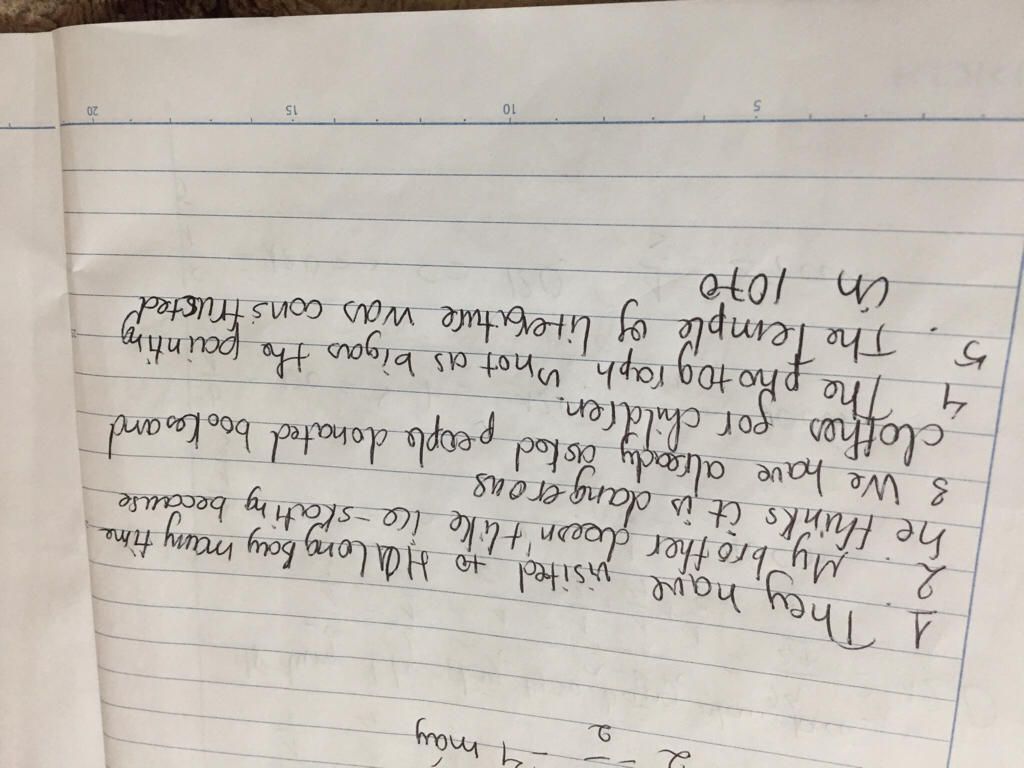 1 They have visited to HaLong bay many time
2. My brother doesn't like ice-skating because
he thinks it is dangerous
3 We have already asked people donated books and
clothes for children.
4 The photograph is not as bigas the painting
5. The Temple of literature was constructed
in 1070
5 10 15 20